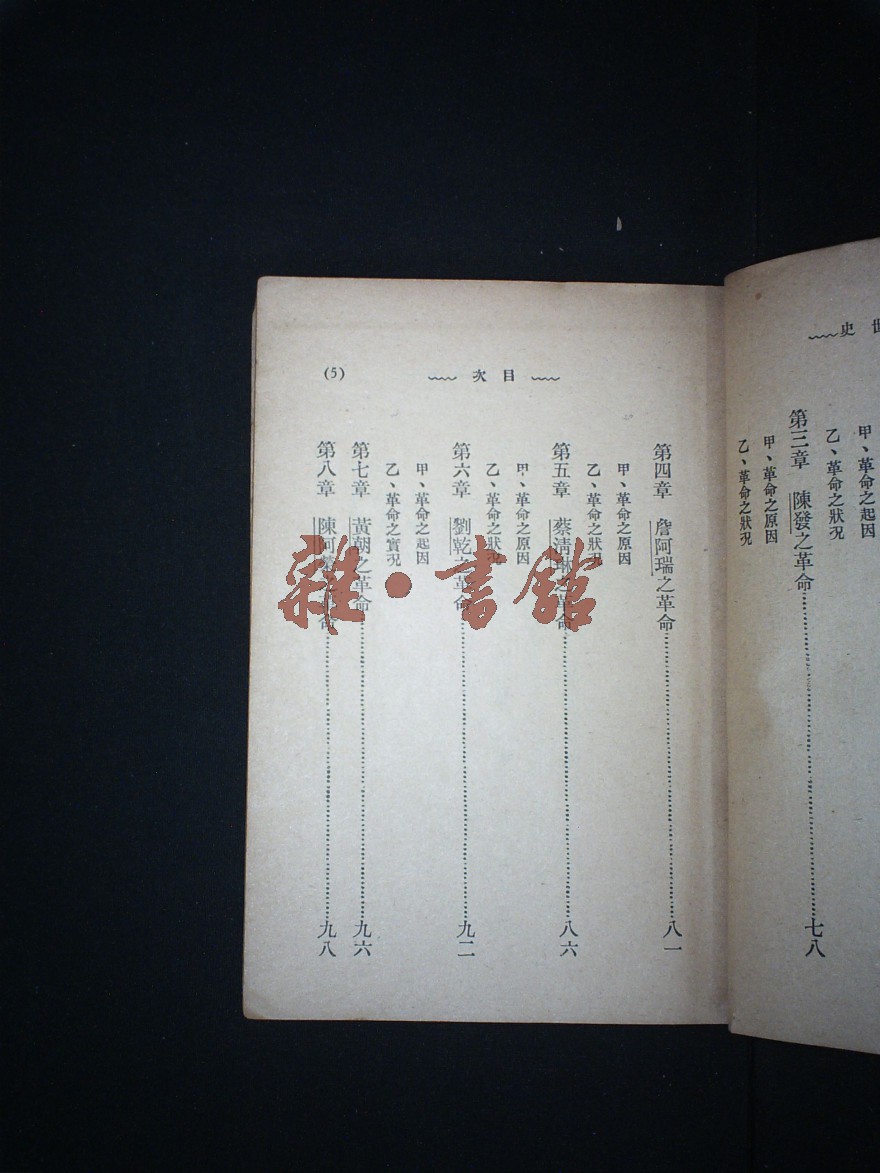 史
甲、革命之起因
乙、革命之狀況
第三章 陳發之革命 七八
甲、革命之原因
乙、革命之狀況
目次
(5)
第四章 詹阿瑞之革命 八一
甲、革命之原因
乙、革命之狀況
第五章 蔡清琳之革命 八六
甲、革命之原因
乙、革命之狀況
第六章 劉乾之革命 九二
甲、革命之起因
乙、革命之實況
第七章 黃朝之革命 九六
第八章 陳阿之革命 九八
雜·書館